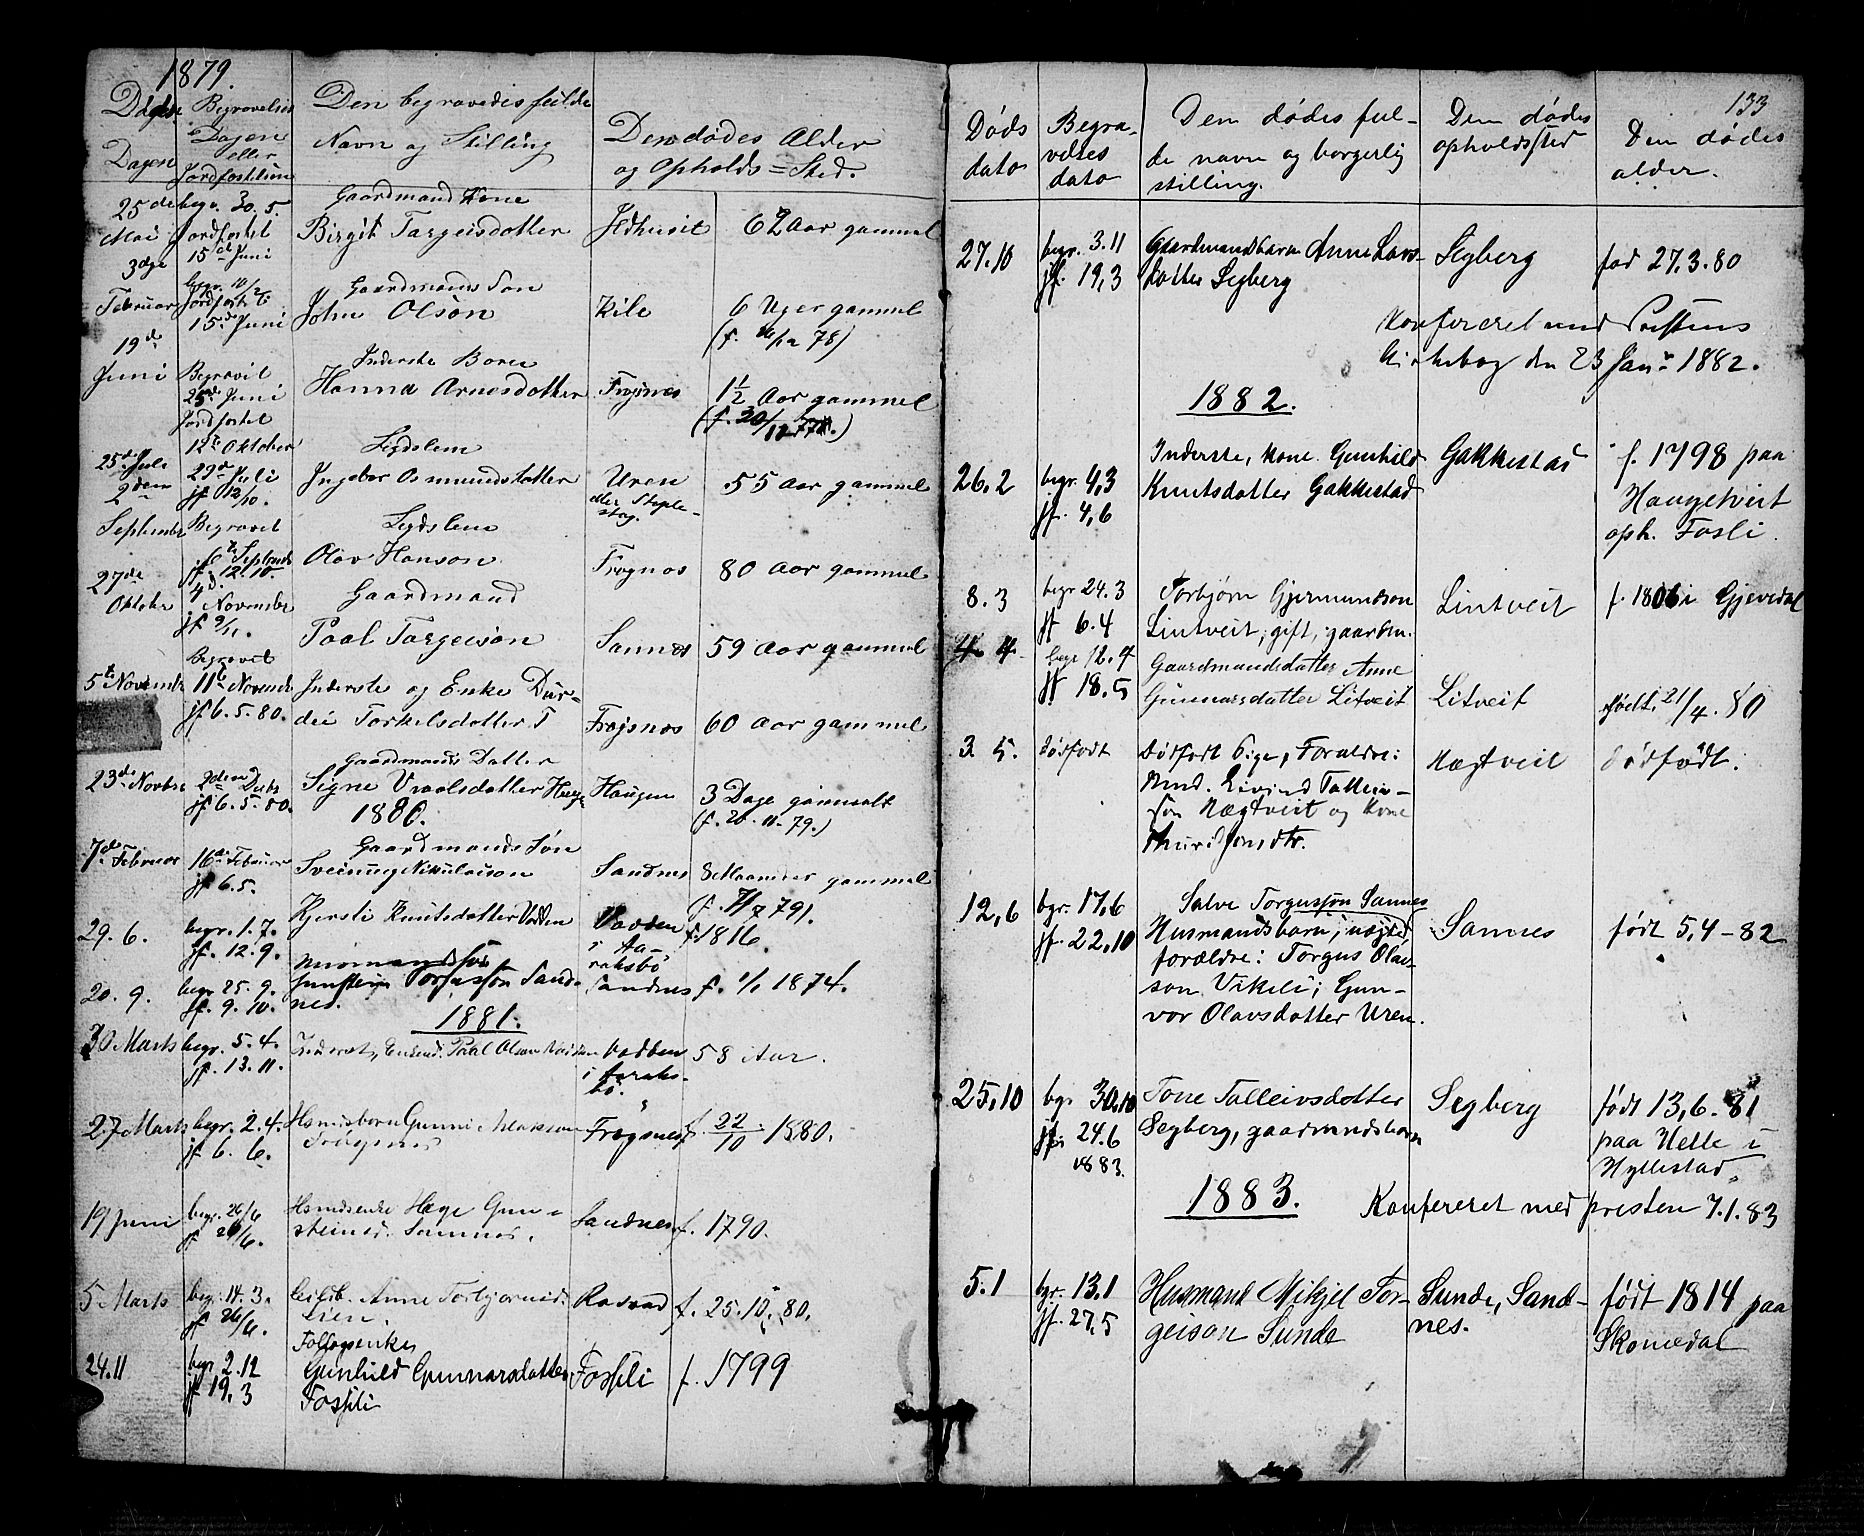 1879.
Døds Dagen
Begravelses Dagen eller Jordfæstelsen
Den begravedes fulde
Navn og Stilling
Den dødes Alder
og Opholds=Sted.
25de Mai
begr. 30. 5. Jordfæstet 15de Juni
Gaardmand Kone
Birgit Targeisdotter
62 Aar gammel
3dje Februar
begr. 10/2 Jordfæstet 15de Juni
Gaardmands Søn
John Olson
Kile
6 Uger gammel
19de Juni
Begravet 25de Juni Jordfæstet 12te Oktober
Inderste Barn
Hanna Arnesdotter
Frøjsnes
1½ Aar gammel
25de Juli
29de Juli jf 12/10.
Legdslem
Ingebor Osmundsdotter
Uren
55 Aar gammel
2den September
Begravet September jf. 12. 10.
Legdslem
Olav Hanson
80 Aar gammel
27de Oktober
4de November jf 9/11.
Gaardmand
Paal Targeison
Sannes
59 Aar gammel
5te November
Begravet 11te November jf 6. 5. 80.
Inderste og Enke Dur-
dei Torkelsdotter
Frøjsnes
60 Aar gammel
23de Novbr
2den Decbr jf 6. 5. 80.
Gaardmands Datter
Signe Vraalsdotter
Haugen
3 Dage gammelt
(f. 20. 11. 79.)
1880.
7de Februar
16de Februar jf 6. 5.
Gaardmands Søn
Sveinung Nikulaison
Sandnes
8 Maaneder gammel
29. 6.
begr. 1. 7.
jf. 12. 9.
Kjersti Knutsdotter Vadden
Vadden
i Aa-
raksbø
f. 1816.
20. 9.
begr. 25. 9.
jf. 9. 10.
Gunstein Torgusson Sand-
nes.
Sandnes
f. 1/1 1874.
1881.
30 Marts
begr. 5. 4.
jf. 13. 11.
Paal Olson
Vadden
i Aaraks-
bø.
58 Aar.
27 Marts
begr. 2. 4.
jf 6. 6.
Frøysnes
f. 22/10. 1880.
19 Juni
begr. 26/6
jf 26/6.
Hege Gun-
steinsd. Sannes.
Sandnes
f. 1790.
5 Marts
begr. 14. 3.
jf 26/6.
Anne Torbjørnsd.
Lien.
f. 25. 10. 80.
24.11
begr 2.12
jf 19, 3
Gunhild Gunnarsdotter
Fossli
Fossli
f. 1799
133
Døds
dato
Begra-
velses
dato
Den dødes ful-
de navn og borgerlig
stilling.
Den dødes
opholdsted
Den dødes
alder.
27.10
begr. 3.11
jf. 19,3
Gaardmandsbarn Anne Lars-
dotter Segberg
Segberg
fød 27.3.80
Konfereret med Prestens
Kirkebog den 23 Janr 1882.
1882.
26.2
begr. 4,3
jf. 4,6
Inderste, kone Gunhild
Knutsdotter Gakkestad
Gakkestad
f. 1798 paa
Haugetveit
oph. Fosli.
8. 3
begr 24.3
jf 6.4
Torbjørn Gjermundson
Lintveit, gift, gaardm.
Lintveit
f. 1806 i Gjøvedal
4. 4
begr 12.4
jf 18.5
Gaardmandsdatter Anne
Gunnarsdatter Litveit
Litveit
født 21/4. 80
3. 5.
dødfødt
Dødfødt Pige, Forældre:
Gmd. Eivind Tallein-
son Nægtveit og Kone
Nægtveit
dødfødt.
12,6
bgr. 17,6
jf. 22,10
Salve Torgusson Sannes
Husmandsbarn, uægte,
forældre: Torgus Olav-
son Vikeli; Gun-
vor Olavsdotter Uren.
Sannes
født 5,4-82
25,10
bgr 30,10
jf. 24.6
1883.
Tone Talleivsdotter
Segberg, gaardmandsbarn
Segberg
født 13,6.81
paa Helle i
Hyllestad.
1883.
Konfereret med presten 7.1.83
5.1
bgr. 13.1
jf. 27,5
Husmand Mikjel Tor-
geison Sunde
Sunde, Sand-
nes.
født 1814 paa
Skomedal